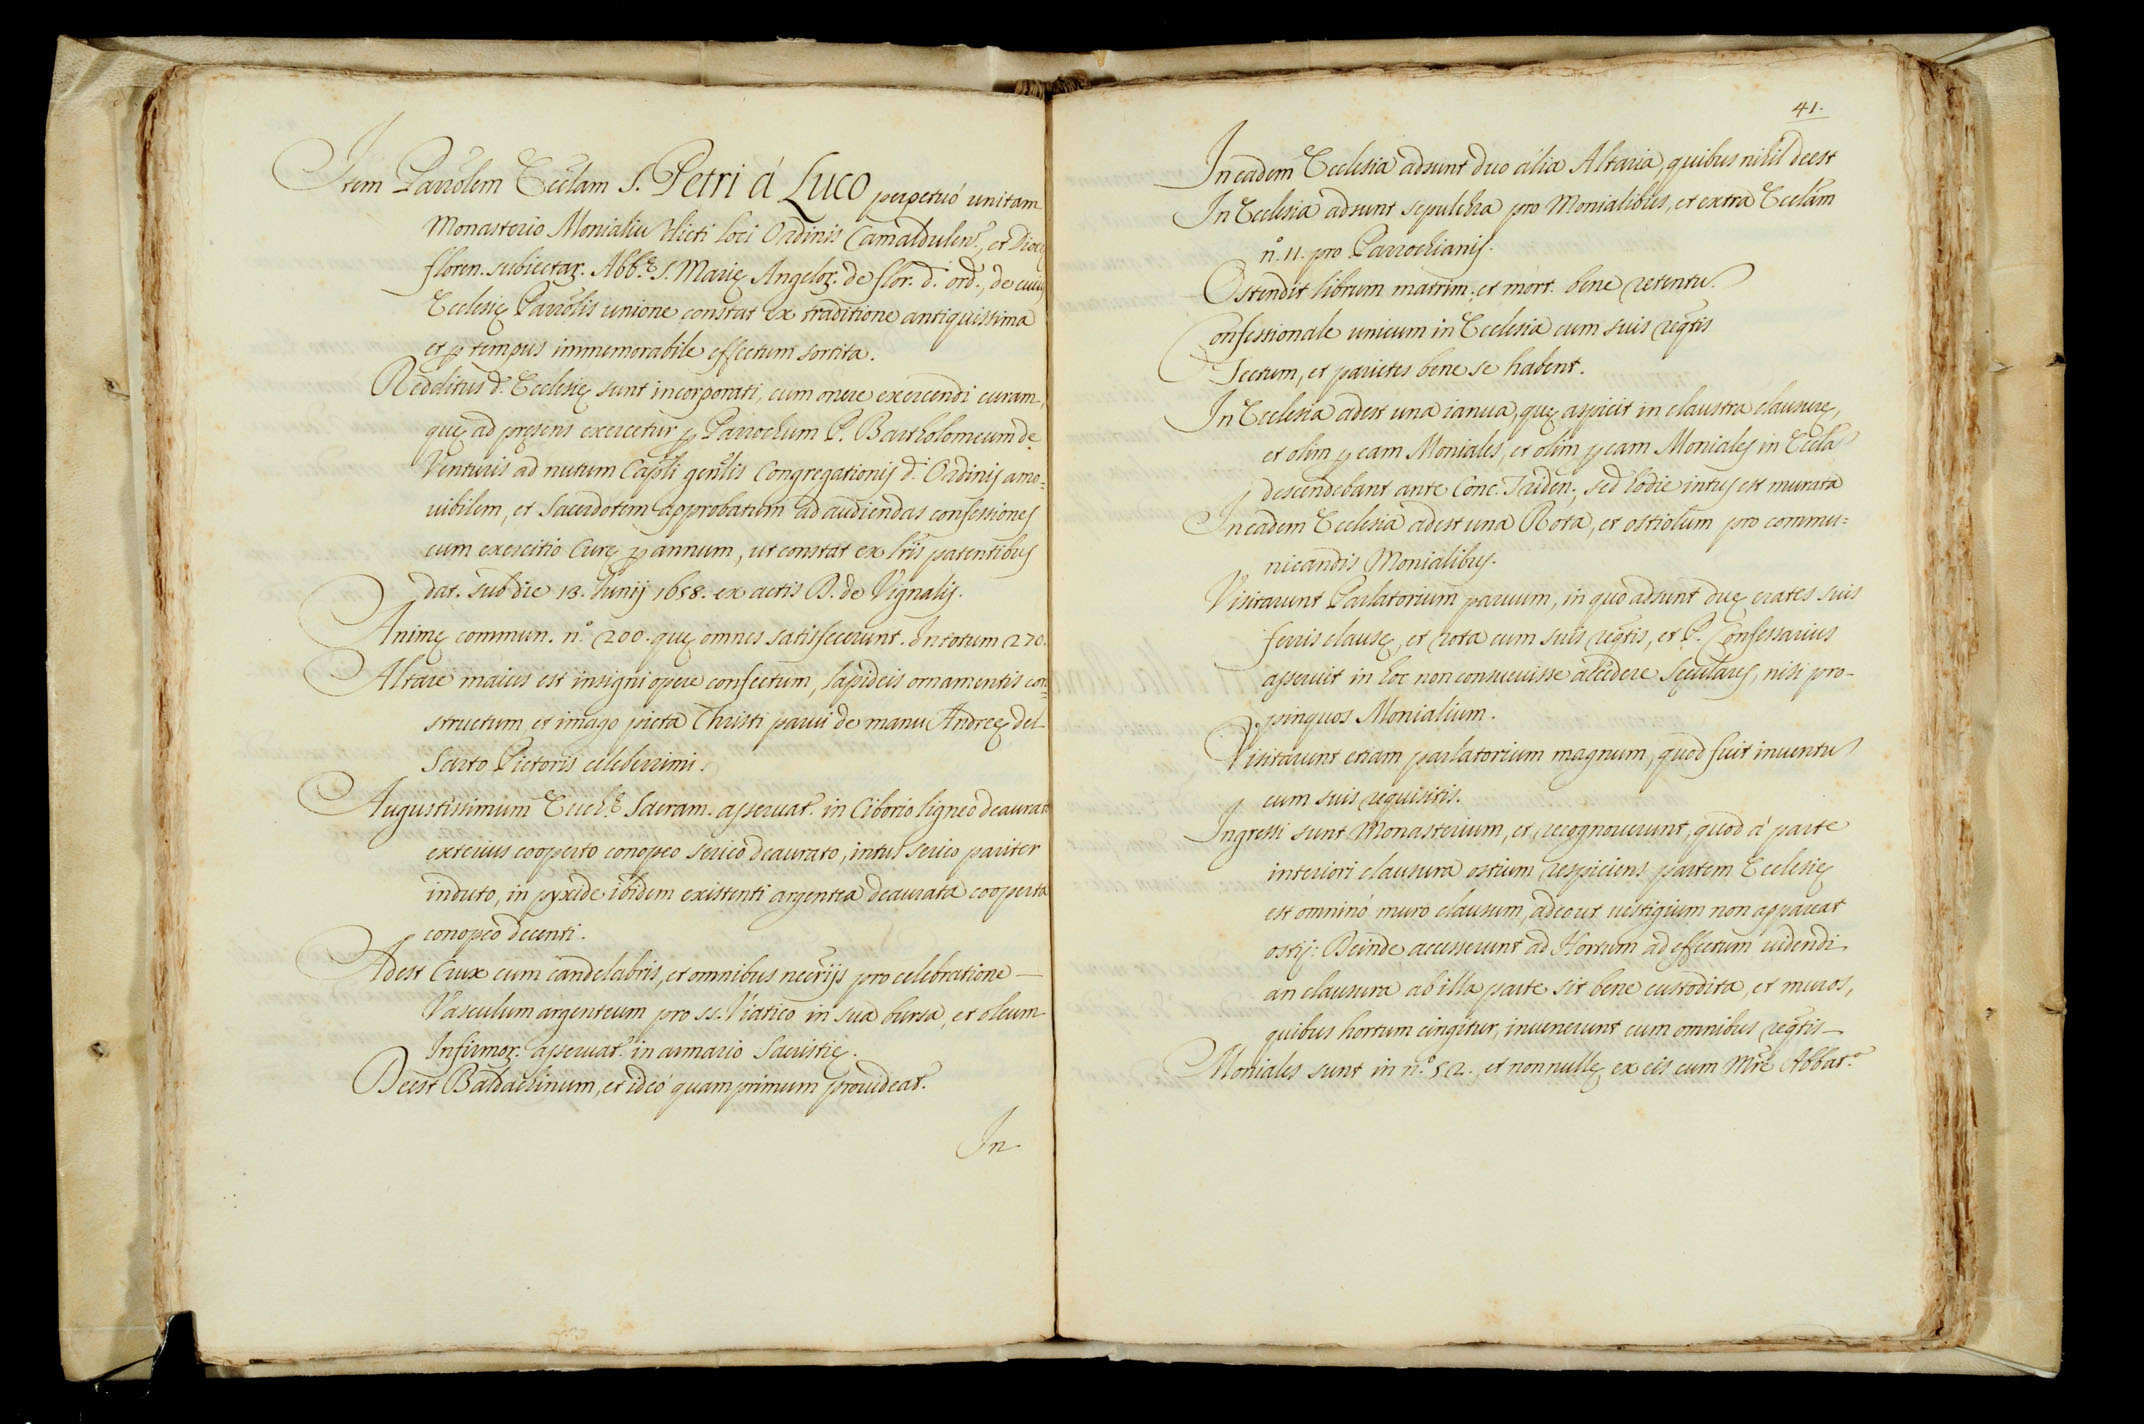 Item Parrõlem Ecclam S. Petri à Luco perpetuò unitam
Monasterio Monialiu dicti loci Ordinis Camaldulens., et Dioc.
floren. subiectar. Abb.ę S. Marię Angelor. de flor. d. ord., de cuius
Ecclesię Parrõlis unione constat ex traditione antiquissima
et p tempus immemorabile effectum sortita.
Redditus d. Ecclesię sunt incorporati, cum onere exercendi curam,
quę ad pręsens exercetur p Parrochum P. Bartholomeum de
Venturis ad nutum Caplì genlìs Congregationis d. Ordinis amo=
uibilem, et Sacerdotem approbatum ad audiendas confessiones
cum exercitio Curę p annum, ut constat ex lrìs patentibus
dat. sub die 13. Iunij 1658. ex actis B. de Vignalis.
Animę commun. n.º 200. quę omnes satisfecerunt. In totum 270.
Altare maius est insigni opere confectum, lapideis ornamentis con=
structum et imago picta Christi parui de manu Andreę del
Sarto Pictoris celeberrimi.
Augustissimum Euch.ę Sacram. asseruat. in Ciborio ligneo deaurat
exterius cooperto conopeo serico deaurato, intus serico pariter
induto, in pyxide ibidem existenti argentea deaurata cooperta
conopeo decenti.
Adest Crux cum candelabris, et omnibus necrijs pro celebratione
Vasculum argenteum pro ss. Viatico in sua bursa, et oleum
Infirmor. asseruat. in armario Sacristię.
Deest Baldachinum, et ideò quamprimum prouideat.
In
41.
In eadem Ecclesia adsunt duo alia Altaria, quibus nihil deest
In Ecclesia adsunt sepulchra pro Monialibus, et extra Ecclam
n.º 11. pro Parrochianis.
Ostendit librum matrim. et mort. bene retentu.
Confessionale unicum in Ecclesia cum suis reqtis
Tectum, et parietes bene se habent.
In Ecclesia adest una ianua, quę aspicit in claustra clausurę,
et olim p eam Moniales, et olim p eam Moniales in Eccla
descendebant ante Conc. Triden., sed hodie intus est murata
In eadem Ecclesia adest una Rota, et ostiolum pro commu=
nicandis Monialibus.
Visitarunt Parlatorium paruum, in quo adsunt duę crates suis
ferris clausę, et rota cum suis reqtis, et P. Confessarius
asseruit in hoc non consueuisse accedere Sęculares, nisi pro-
pinquos Monialium.
Visitarunt etiam parlatorium magnum, quod fuit inventu
cum suis requisitis.
Ingressi sunt Monasterium, et recognouerunt, quod à parte
interiori clausura ostium respiciens partem Ecclesię
est omninò muro clausum, adeo ut uestigium non appareat
ostij: Deinde accesserunt ad Hortum ad effectum uidendi
an clausura ab illa parte sit bene custodita, et muros,
quibus hortum cingitur, inuenerunt cum omnibus reqtis
Moniales sunt in n.º 52., et nonnullę ex eis cum Mre Abbat.ª